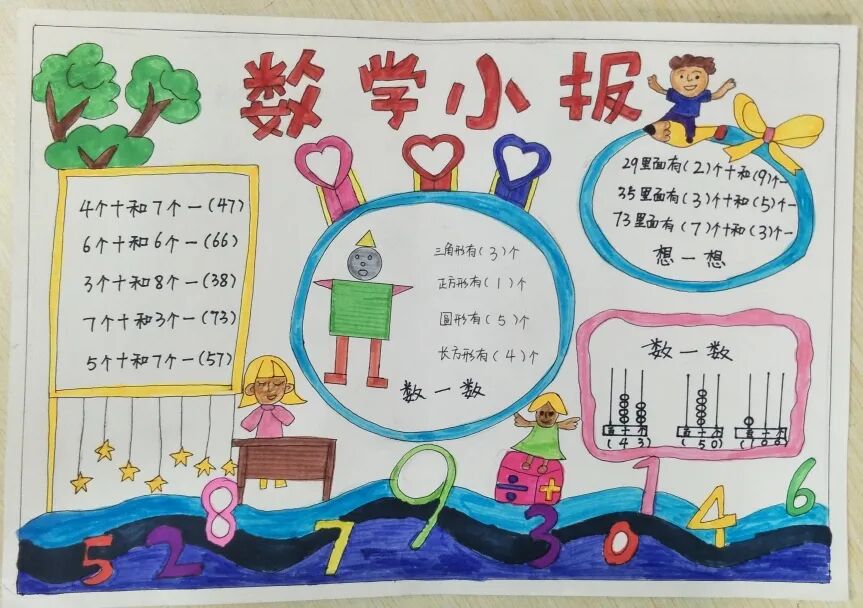 数学小报
4个十和7个一(47)
6个十和6个一(66)
3个十和8个一(38)
7个十和3个一(73)
5个十和7个一(57)
三角形有(3)个
正方形有(1)个
圆形有(5)个
长方形有(4)个
数一数
29里面有(2)个十和(9)个一
35里面有(3)个十和(5)个一
73里面有(7)个十和(3)个一
想一想
数一数
百十个 百十个 百十个
(43) (50) (100)
÷ +
5 2 8 7 9 3 0 1 4 6